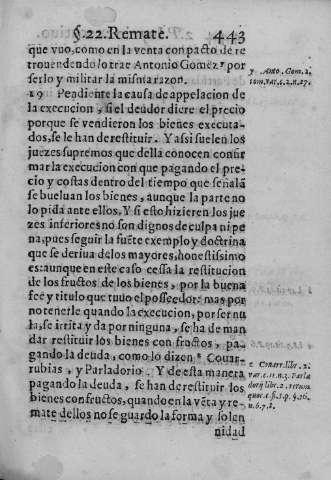 §.22. Remate. 443
que vuo, como en la venta con pacto de re
trouendendo lo trae Antonio Gomez y por
serlo y militar la misma razon.
y Anto. Gom. 2.
tom. var. c. 2. n. 27.
19 Pendiente la causa de appelacion de
la execucion, si el deudor diere el precio
porque se vendieron los bienes executa-
dos, se le han de restituir. Y assi suelen los
juezes supremos que della conocen confir
mar la execucion con que pagando el pre-
cio y costas dentro del tiempo que señalã
se bueluan los bienes, aunque la parte no
lo pida ante ellos. Y si esto hizieren los jue
zes inferiores no son dignos de culpa ni pe
na, pues seguir la fuẽte exemplo y doctrina
que se deriua de los mayores, honestissimo
es: aunque en este caso cessa la restitucion
de los fructos de los bienes, por la buena
fee y titulo que tuuo el posseedor: mas por
no tenerle quando la execucion, por ser nu
la, se irrita y da por ninguna, se ha de man
dar restituir los bienes con fructos, pa-
gando la deuda, como lo dizen z Couar-
rubias, y Parladorio. Y de esta manera
pagando la deuda, se han de restituir los
bienes con fructos, quando en la vẽta y re-
mate dellos no se guardo la forma y solen
nidad
z Couarr. libr. 2.
var. c. 11. n. 3. Parla
dorij libr. 2. rerum
quot. c. fi. 5. p. §. 16.
n. 6. 7. 8.